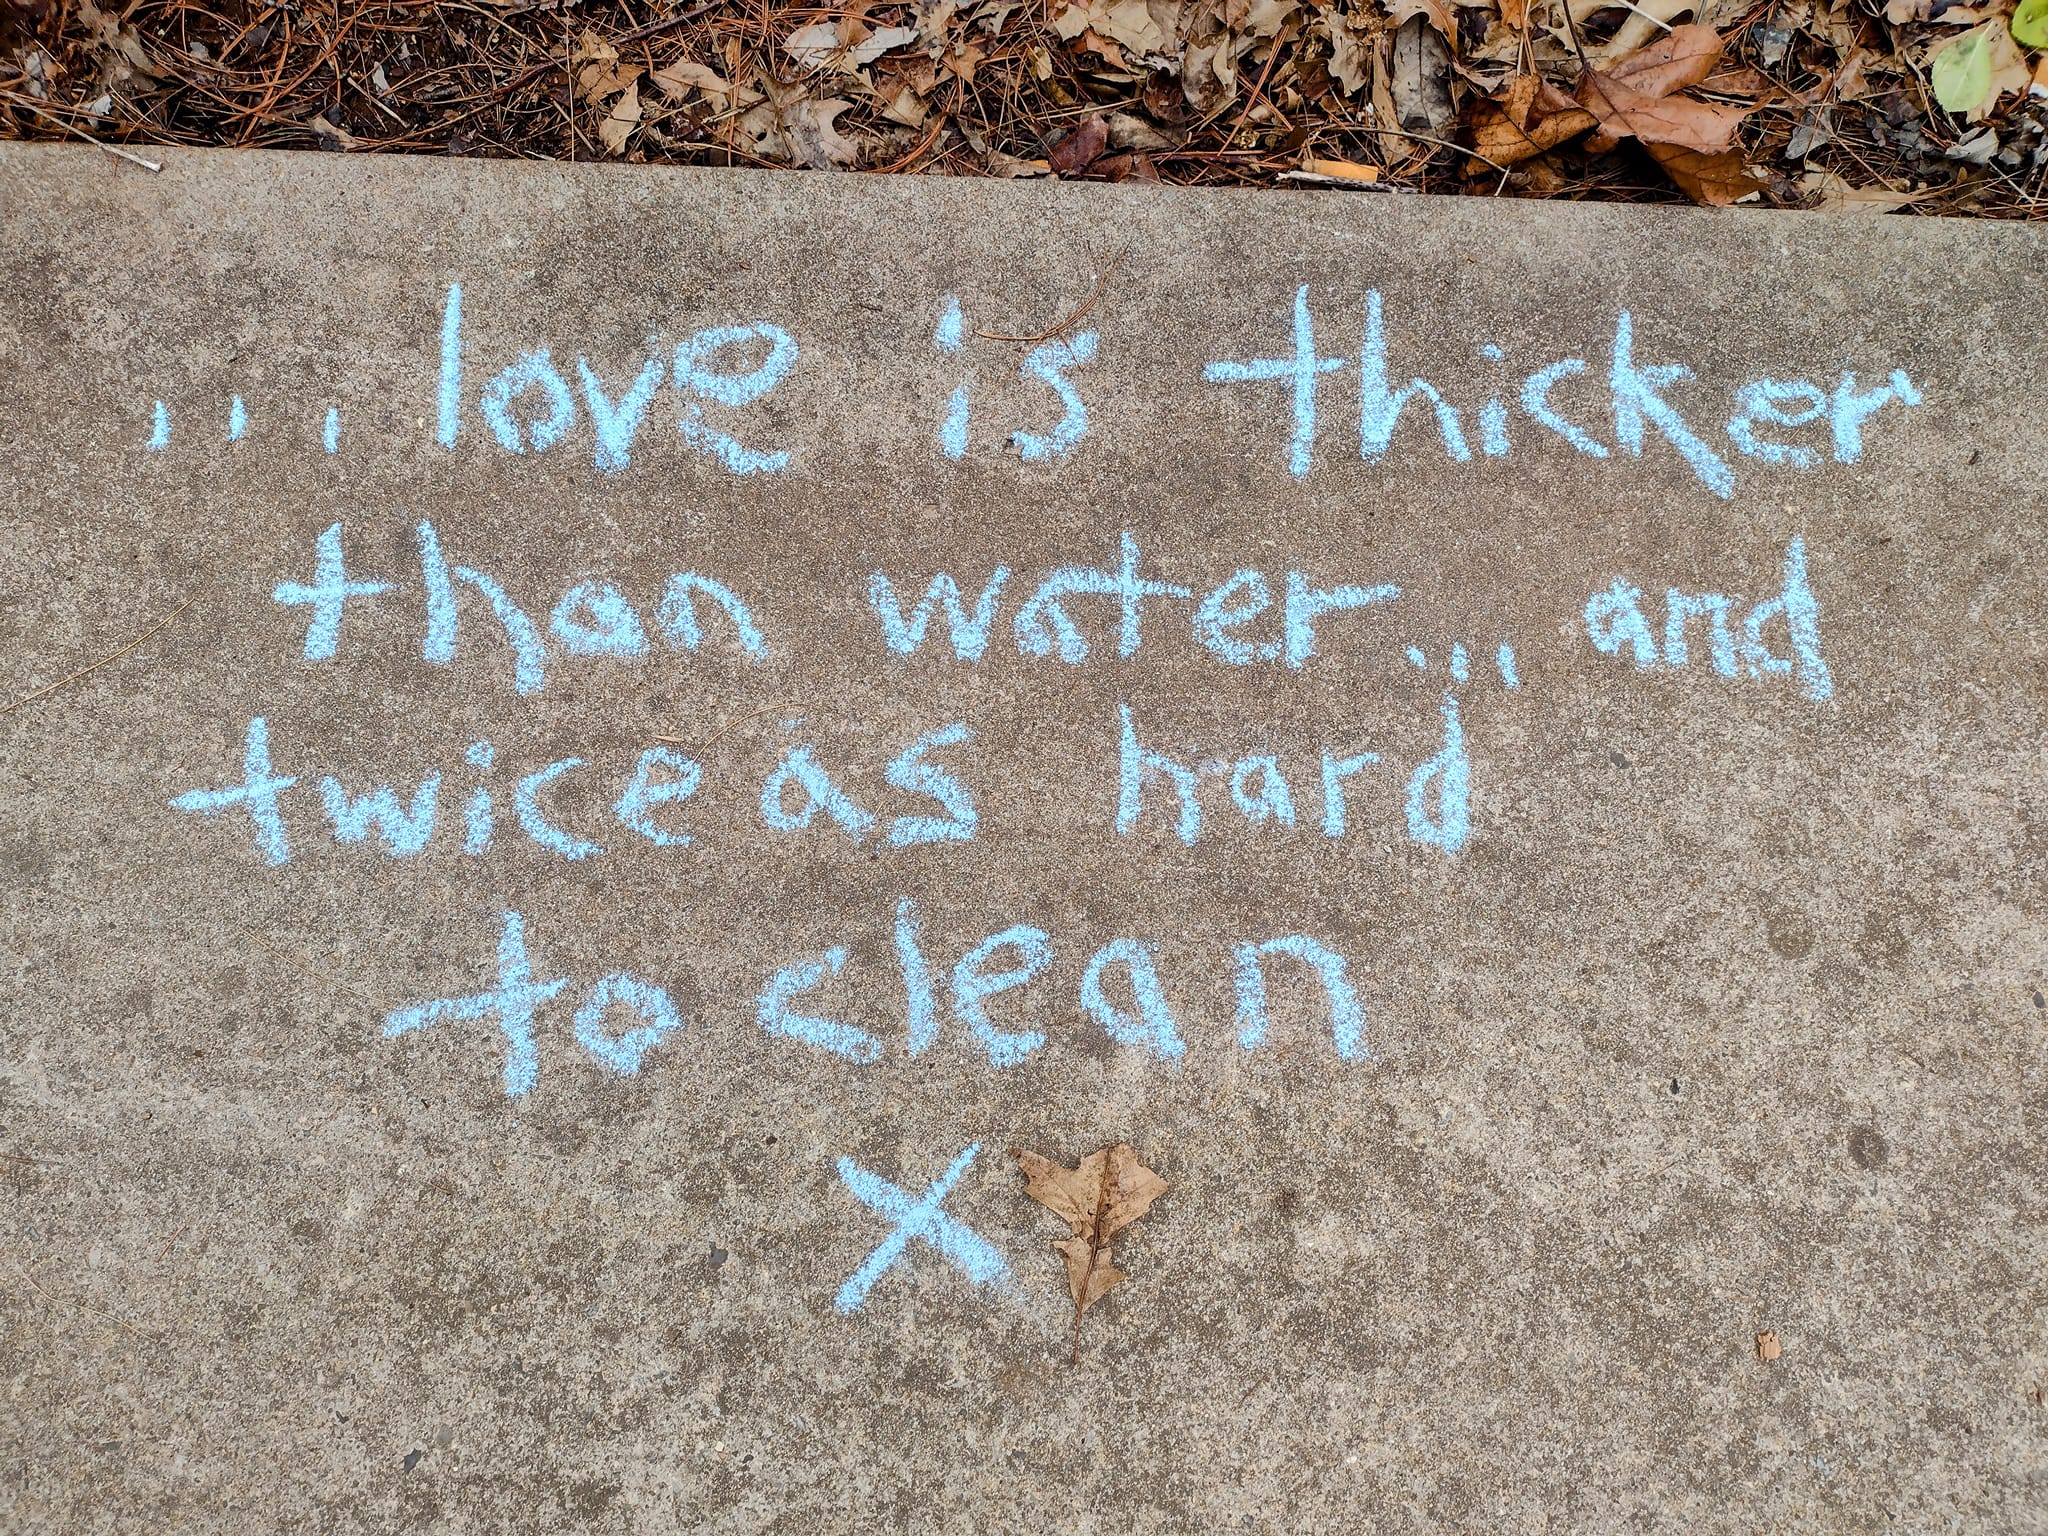 ...love is thicker
than water... and
twice as hard
to clean
X